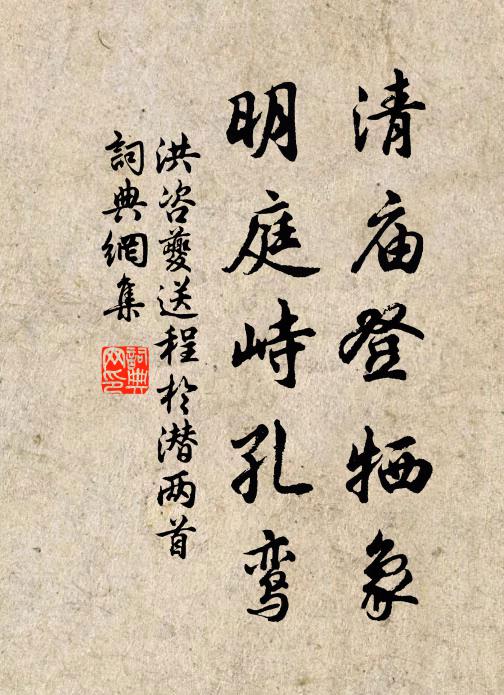 清庙登牺象
明庭峙孔鸾
洪咨夔送程於潜两首
詞典網集
詞典
网印